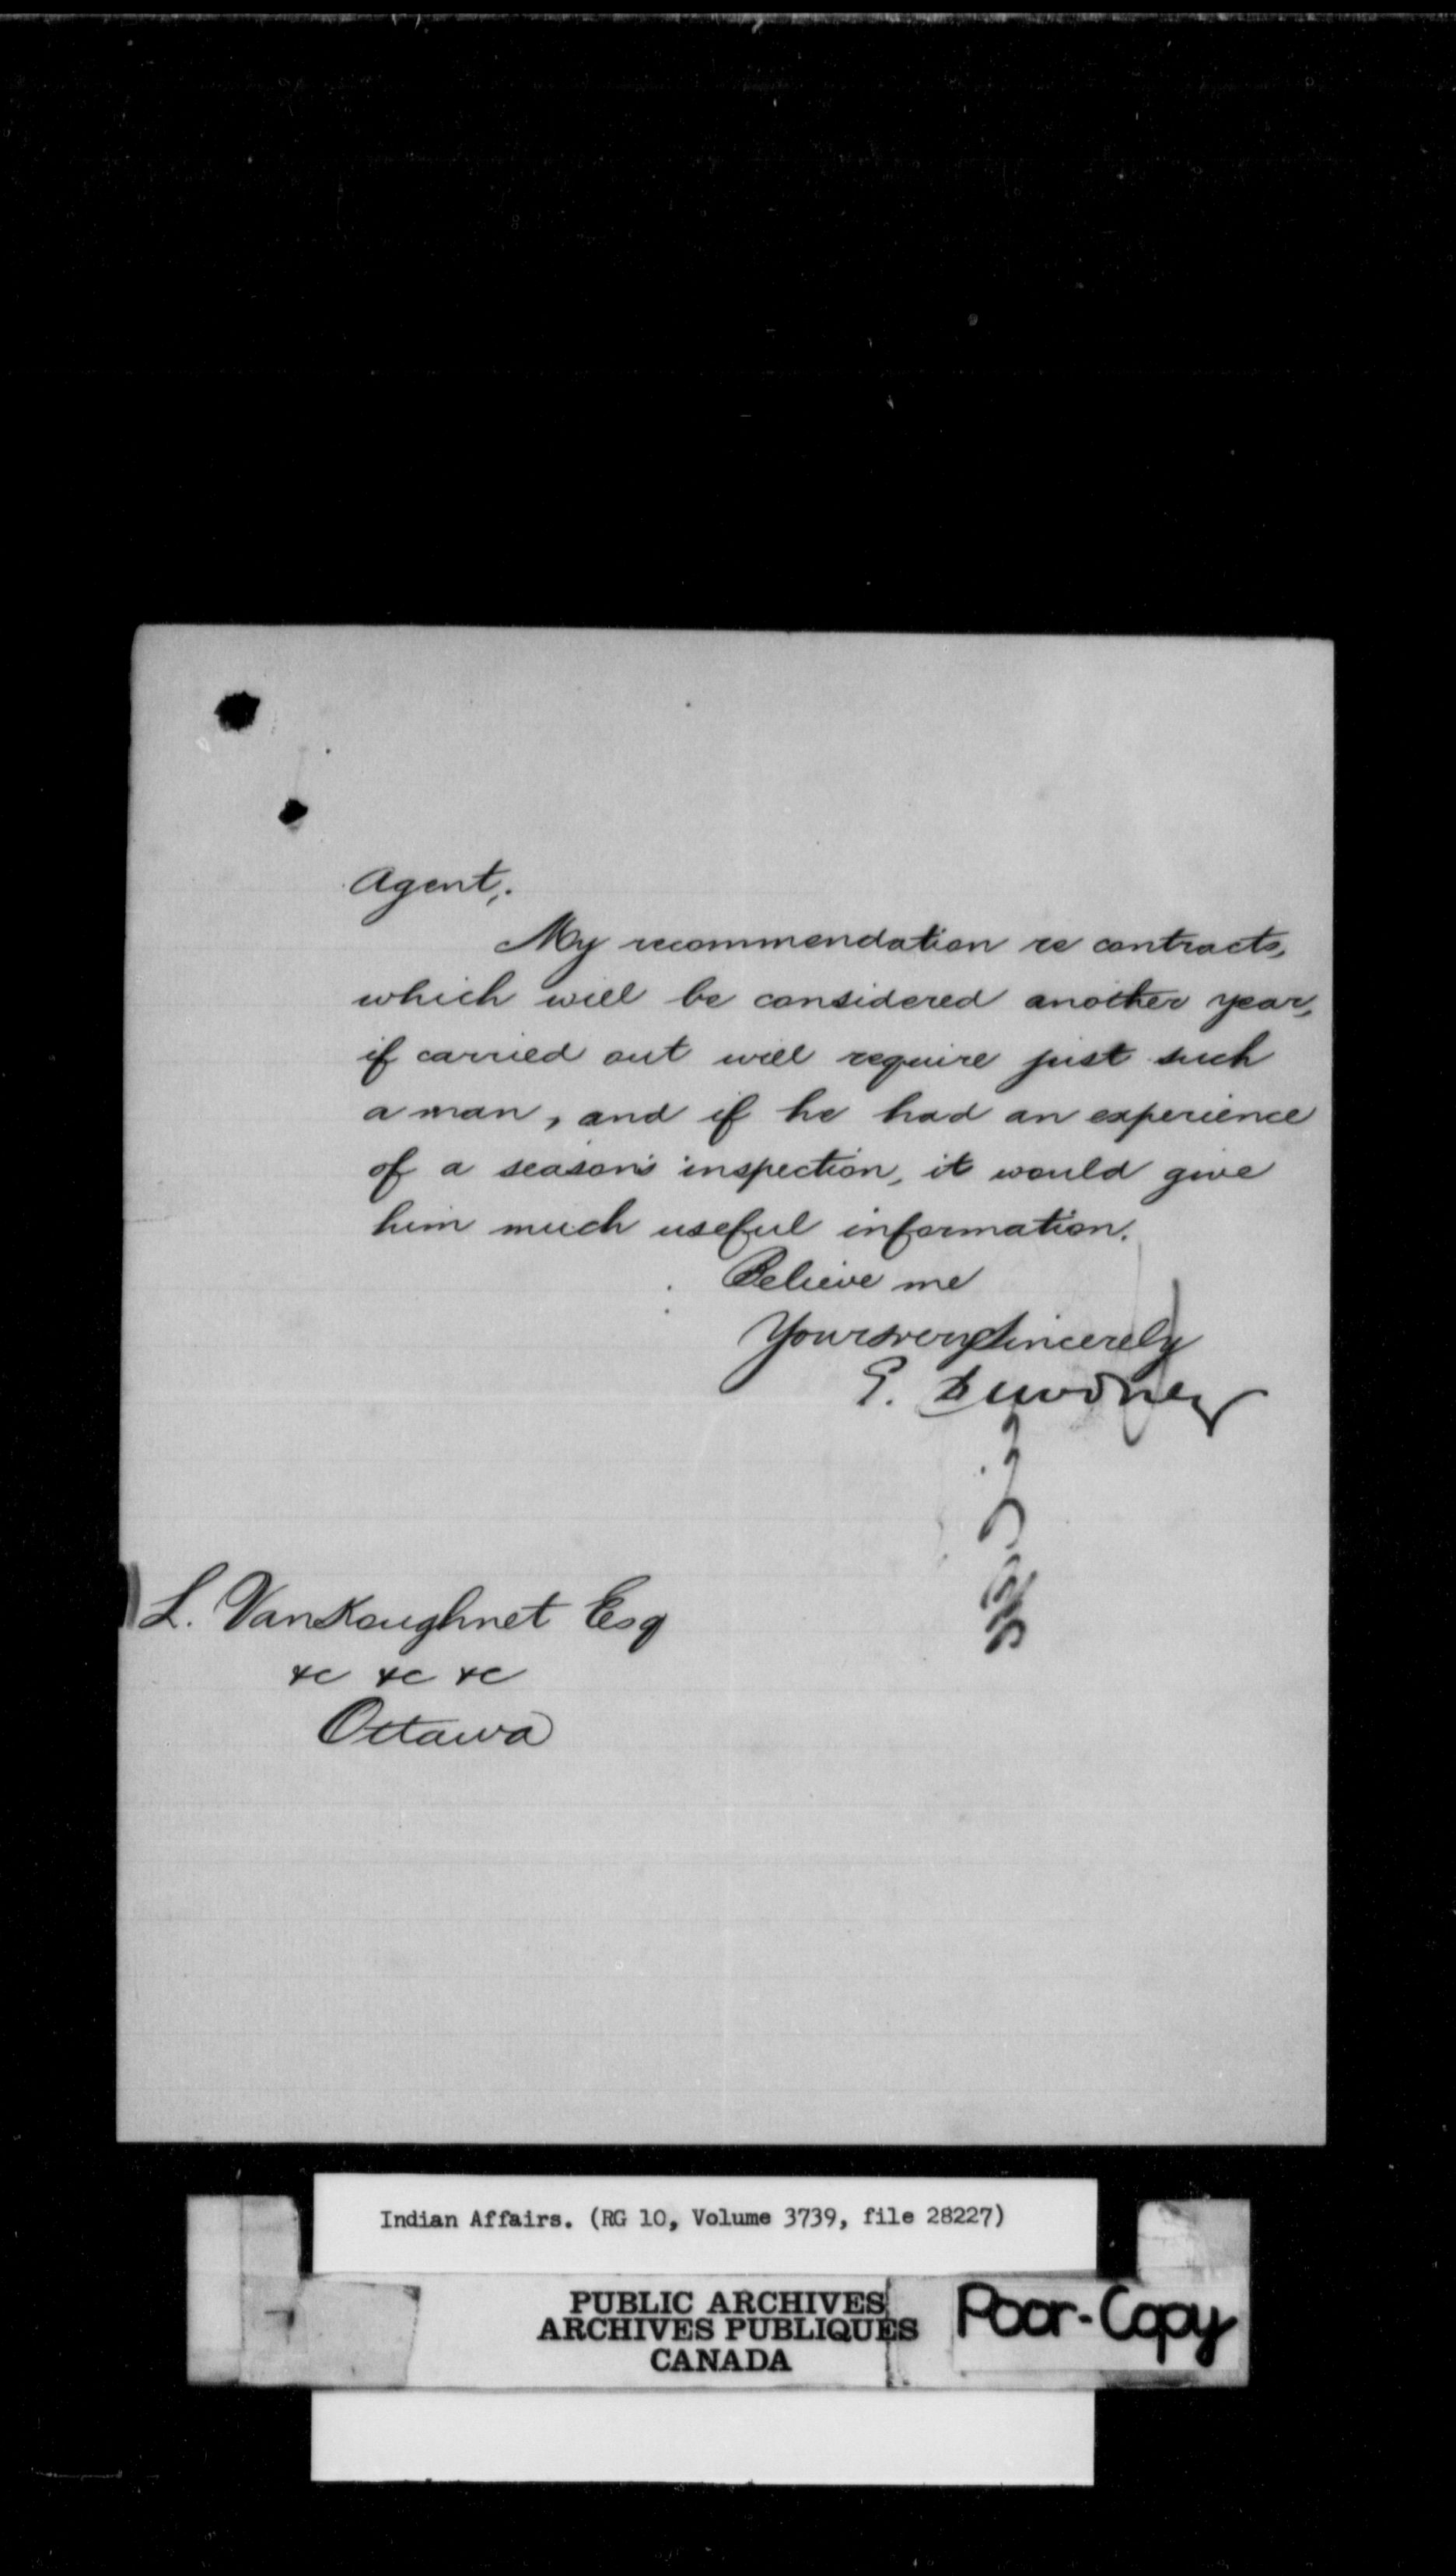 Agent,.
My recommendation re contracts,
which will be considered another year,
if carried out will require just such
a man, and if he had an experience
of a season's inspection, it would give
him much useful information.
Believe me
Yours very Sincerely
E. Dewdney
L. VanKoughnet Esq
&c &c &c
Ottawa
Indian Affairs. (RG 10, Volume 3739, file 28227)
PUBLIC ARCHIVES
ARCHIVES PUBLIQUES
CANADA
Poor-Copy